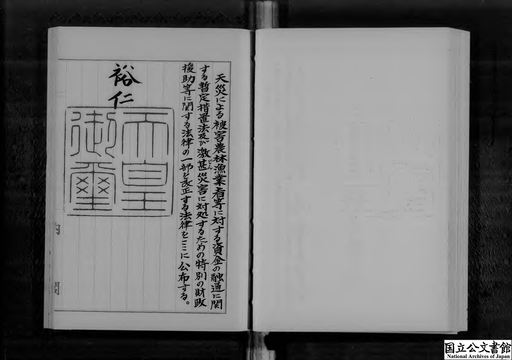 天災による被害農林漁業者等に対する資金の融通に関
する暫定措置法及び激甚災害に対処するための特別の財政
援助等に関する法律の一部を改正する法律をここに公布する。
裕仁
天皇
御璽
国立公文書館
National Archives of Japan